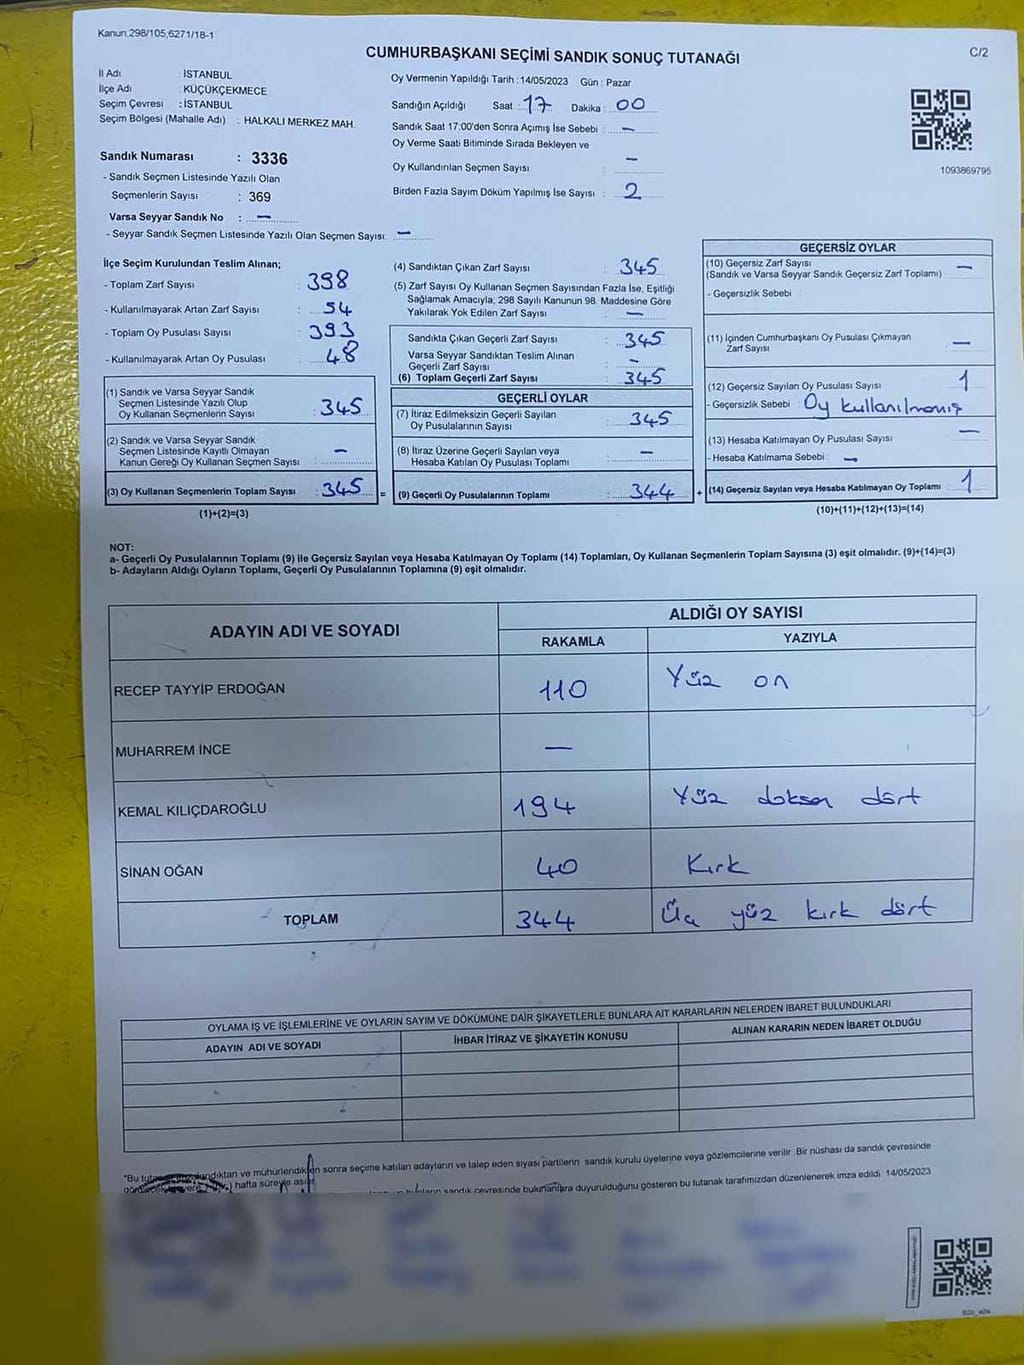 Kanun,298/105,6271/18-1
C/2
CUMHURBAŞKANI SEÇİMİ SANDIK SONUÇ TUTANAĞI
İl Adı : İSTANBUL
İlçe Adı : KÜÇÜKÇEKMECE
Seçim Çevresi : İSTANBUL
Seçim Bölgesi (Mahalle Adı) : HALKALI MERKEZ MAH.
Sandık Numarası : 3336
- Sandık Seçmen Listesinde Yazılı Olan
Seçmenlerin Sayısı : 369
Varsa Seyyar Sandık No : —
- Seyyar Sandık Seçmen Listesinde Yazılı Olan Seçmen Sayısı: —
Oy Vermenin Yapıldığı Tarih :14/05/2023 Gün : Pazar
Sandığın Açıldığı Saat : 17 Dakika : 00
Sandık Saat 17:00'den Sonra Açımış İse Sebebi : —
Oy Verme Saati Bitiminde Sırada Bekleyen ve
Oy Kullandırılan Seçmen Sayısı : —
Birden Fazla Sayım Döküm Yapılmış İse Sayısı : 2
1093869795
İlçe Seçim Kurulundan Teslim Alınan;
- Toplam Zarf Sayısı : 398
- Kullanılmayarak Artan Zarf Sayısı : 54
- Toplam Oy Pusulası Sayısı : 393
- Kullanılmayarak Artan Oy Pusulası : 48
(1) Sandık ve Varsa Seyyar Sandık
Seçmen Listesinde Yazılı Olup
Oy Kullanan Seçmenlerin Sayısı : 345
(2) Sandık ve Varsa Seyyar Sandık
Seçmen Listesinde Kayıtlı Olmayan
Kanun Gereği Oy Kullanan Seçmen Sayısı : —
(3) Oy Kullanan Seçmenlerin Toplam Sayısı : 345 =
(1)+(2)=(3)
(4) Sandıktan Çıkan Zarf Sayısı : 345
(5) Zarf Sayısı Oy Kullanan Seçmen Sayısından Fazla İse, Eşitliği
Sağlamak Amacıyla; 298 Sayılı Kanunun 98. Maddesine Göre
Yakılarak Yok Edilen Zarf Sayısı : —
Sandıkta Çıkan Geçerli Zarf Sayısı : 345
Varsa Seyyar Sandıktan Teslim Alınan
Geçerli Zarf Sayısı : —
(6) Toplam Geçerli Zarf Sayısı : 345
GEÇERLİ OYLAR
(7) İtiraz Edilmeksizin Geçerli Sayılan
Oy Pusulalarının Sayısı : 345
(8) İtiraz Üzerine Geçerli Sayılan veya
Hesaba Katılan Oy Pusulası Toplamı : —
(9) Geçerli Oy Pusulalarının Toplamı : 344 +
GEÇERSİZ OYLAR
(10) Geçersiz Zarf Sayısı
(Sandık ve Varsa Seyyar Sandık Geçersiz Zarf Toplamı) : —
- Geçersizlik Sebebi :
(11) İçinden Cumhurbaşkanı Oy Pusulası Çıkmayan
Zarf Sayısı : —
(12) Geçersiz Sayılan Oy Pusulası Sayısı : 1
- Geçersizlik Sebebi : Oy kullanılmamış
(13) Hesaba Katılmayan Oy Pusulası Sayısı : —
- Hesaba Katılmama Sebebi : —
(14) Geçersiz Sayılan veya Hesaba Katılmayan Oy Toplamı : 1
(10)+(11)+(12)+(13)=(14)
NOT:
a- Geçerli Oy Pusulalarının Toplamı (9) ile Geçersiz Sayılan veya Hesaba Katılmayan Oy Toplamı (14) Toplamları, Oy Kullanan Seçmenlerin Toplam Sayısına (3) eşit olmalıdır. (9)+(14)=(3)
b- Adayların Aldığı Oyların Toplamı, Geçerli Oy Pusulalarının Toplamına (9) eşit olmalıdır.
ADAYIN ADI VE SOYADI
ALDIĞI OY SAYISI
RAKAMLA YAZIYLA
RECEP TAYYİP ERDOĞAN 110 Yüz on
MUHARREM İNCE —
KEMAL KILIÇDAROĞLU 194 Yüz doksan dört
SİNAN OĞAN 40 Kırk
TOPLAM 344 Üç yüz kırk dört
OYLAMA İŞ VE İŞLEMLERİNE VE OYLARIN SAYIM VE DÖKÜMÜNE DAİR ŞİKAYETLERLE BUNLARA AİT KARARLARIN NELERDEN İBARET BULUNDUKLARI
ADAYIN ADI VE SOYADI İHBAR İTİRAZ VE ŞİKAYETİN KONUSU ALINAN KARARIN NEDEN İBARET OLDUĞU
*Bu ve mühürlendikten sonra seçime katılan adayların ve talep eden siyasi partilerin sandık kurulu üyelerine veya gözlemcilerine verilir. Bir nüshası da sandık çevresinde
hafta süreyle sandık çevresinde bulunanlara duyurulduğunu gösteren bu tutanak tarafımızdan düzenlenerek imza edildi. 14/05/2023